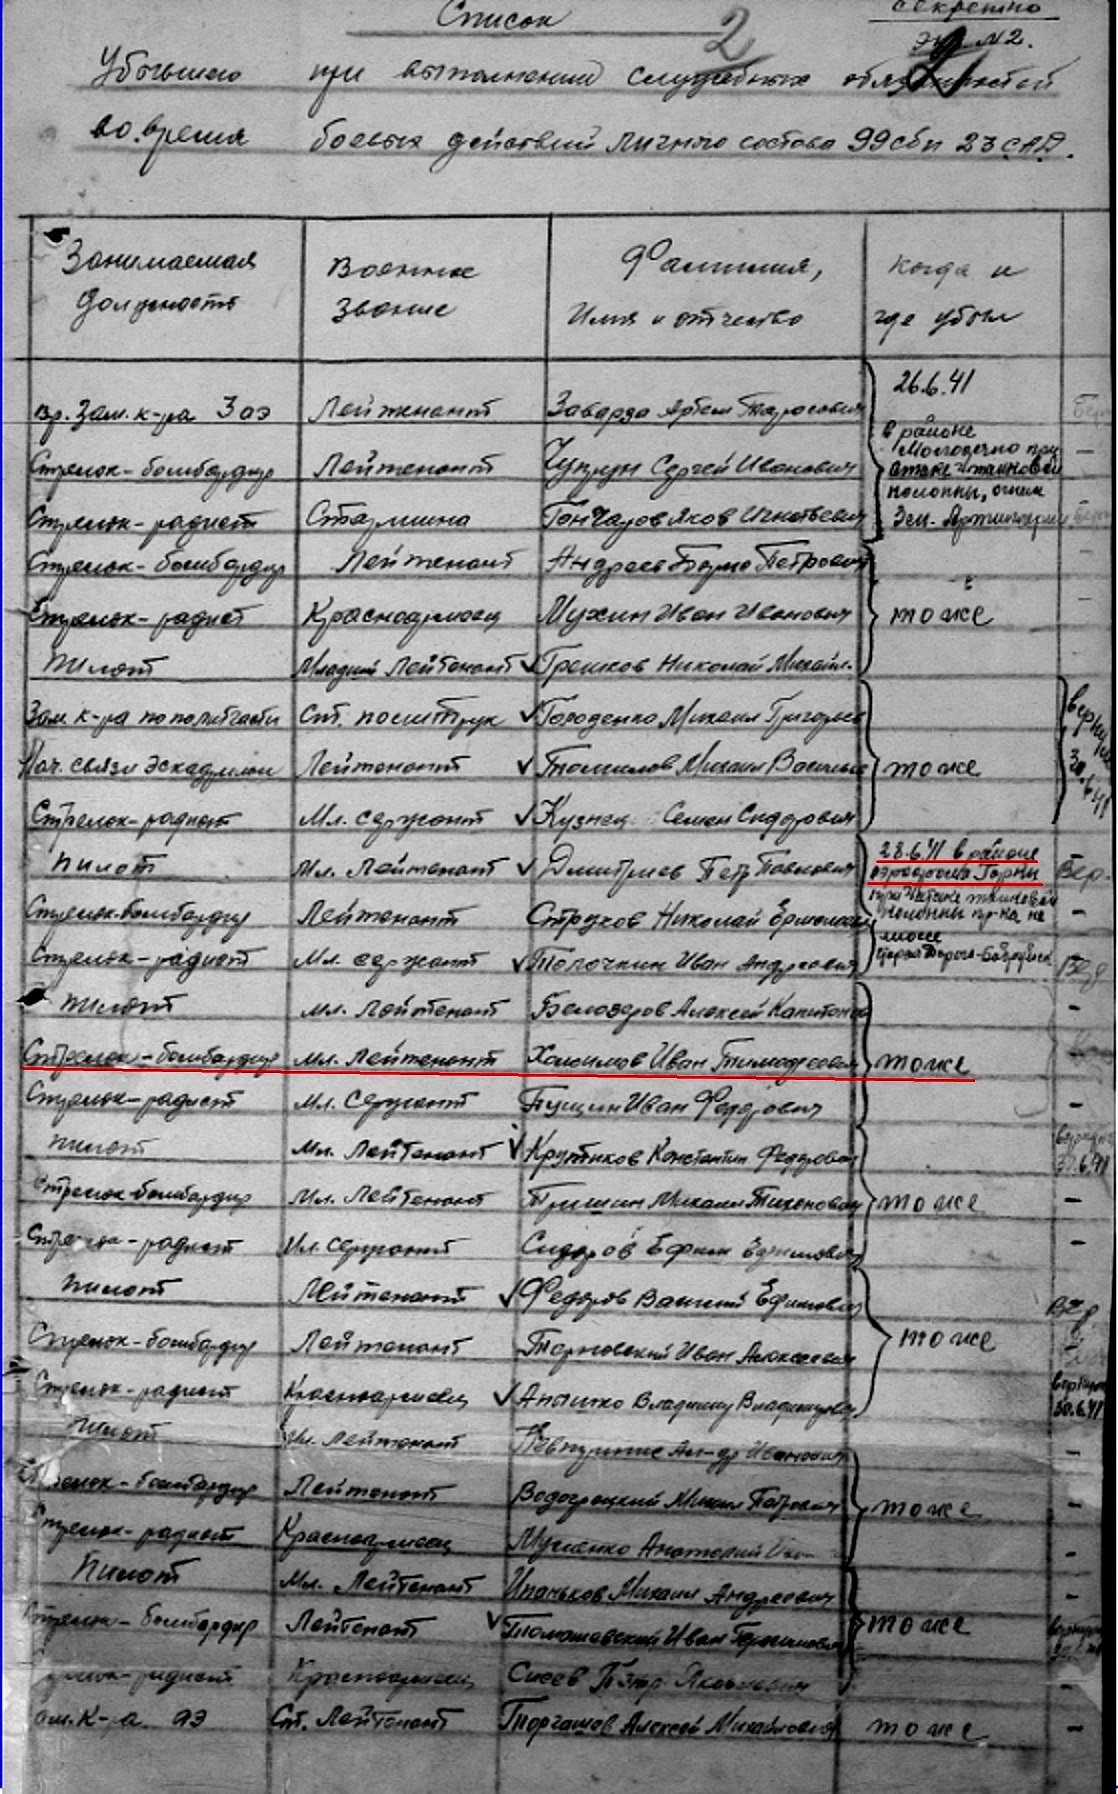 Список
2
Секретно
Экз. №2.
Убывшего при выполнении служебных обязанностей
во время боевых действий личного состава 99сбп 23 САД.
Занимаемая должность Военное звание Фамилия, Имя и отчество Когда и где убыл
Вр. Зам. к-ра 3 аэ Лейтенант Заварза Артем Тарасович
26.6.41
в районе
Молодечно при
Стрелок-бомбардир Лейтенант Сергей Иванович атаке танковой –
колонны, огнем
Стрелок-радист Старшина Гончаров Яков Игнатьевич Зен. Артиллерии
Стрелок-бомбардир Лейтенант Андреев Петрович –
Стрелок-радист Красноармеец Мухин Иван Иванович тоже –
Пилот Младший Лейтенант ✓ Грешков Николай Михайл.
Зам. к-ра по политчасти Ст. политрук ✓ Голоденко Михаил Григорьев
Нач. связи эскадрильи Лейтенант ✓ Томилов Михаил Василье тоже 30.6.41
Стрелок-радист Мл. сержант ✓ Кузнец Семен Сидорович
Пилот Мл. Лейтенант ✓ Дмитриев Петр Павлович 28.6.41 в районе Вер.
аэродрома Горны
при атаке танковой
Стрелок-бомбардир Лейтенант Струков Николай колонны пр-ка на –
Стрелок-радист Мл. сержант ✓ Толочкин Иван Андреевич Бобруйск Вер
Пилот Мл. Лейтенант Белозеров Алексей –
Стрелок-бомбардир Мл. Лейтенант Иван Тимофеевич тоже
Стрелок-радист Мл. Сержант Пущин Иван Федорович –
Пилот Мл. Лейтенант ✓ Крутиков Константин Федорович 30.6.41
Стрелок-бомбардир Мл. Лейтенант Гришин Михаил Тихонович тоже –
Стрелок-радист Мл. Сержант Сидоров Ефим Ефимович –
Пилот Лейтенант ✓ Федоров Василий Ефимович Вер.
Стрелок-бомбардир Лейтенант Тарновский Иван Алексеевич тоже
Стрелок-радист Красноармеец ✓ Владимир Владимирович 30.6.41
Пилот Мл. Лейтенант Ал-др Иванович –
Стрелок-бомбардир Лейтенант Михаил Петрович тоже –
Стрелок-радист Красноармеец Мусиенко Анатолий –
Пилот Мл. Лейтенант Ипаньков Михаил Андреевич –
Стрелок-бомбардир Лейтенант ✓ Томашевский Иван тоже
Стрелок-радист Красноармеец Сисев Петр Яковлевич
Зам. К-ра аэ Ст. Лейтенант Торгашов Алексей Михайлович тоже –